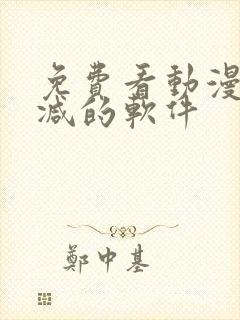 免費看動漫
減的軟件
鄭中基